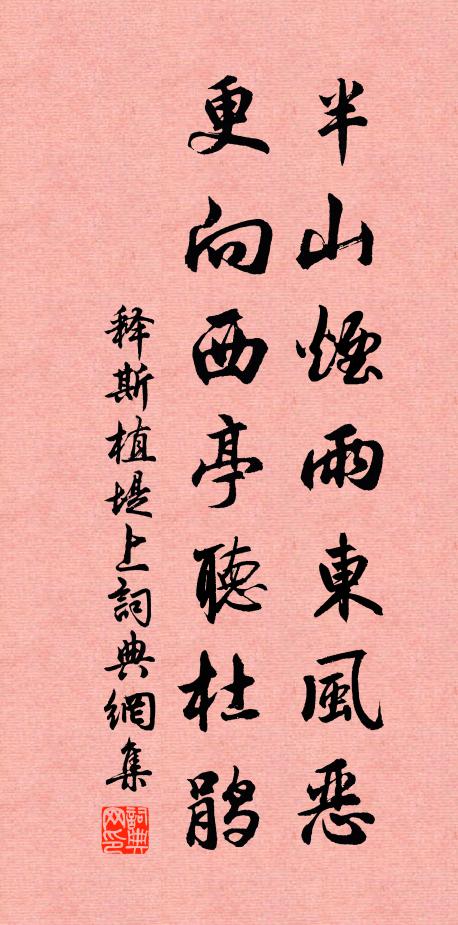 半山煙雨東風惡
更向西亭聽杜鹃
释斯植堤上詞典網集
詞典网印